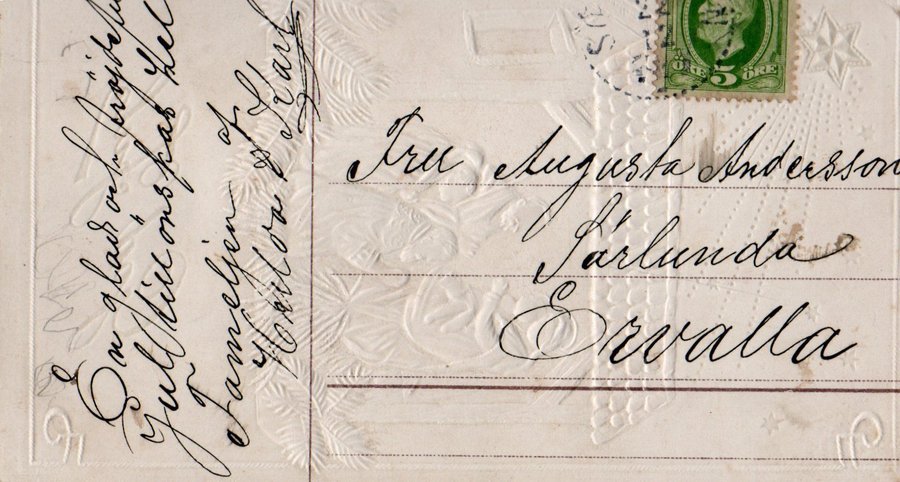 En glad och fröjdefull
Jul tillönskas Eel
Familjen af
Hellova & Karl
ÖRE 5 ÖRE
Fru Augusta Andersson
Särlunda
Ervalla